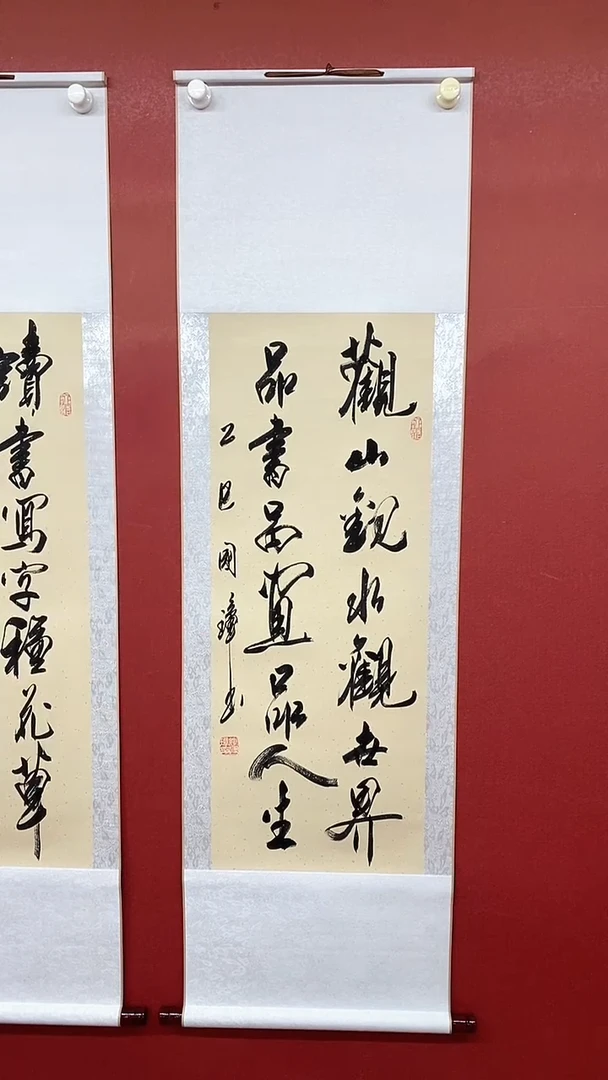 觀山觀水觀世界
品書品品人生
乙巳國璋书
讀書寫字種花草